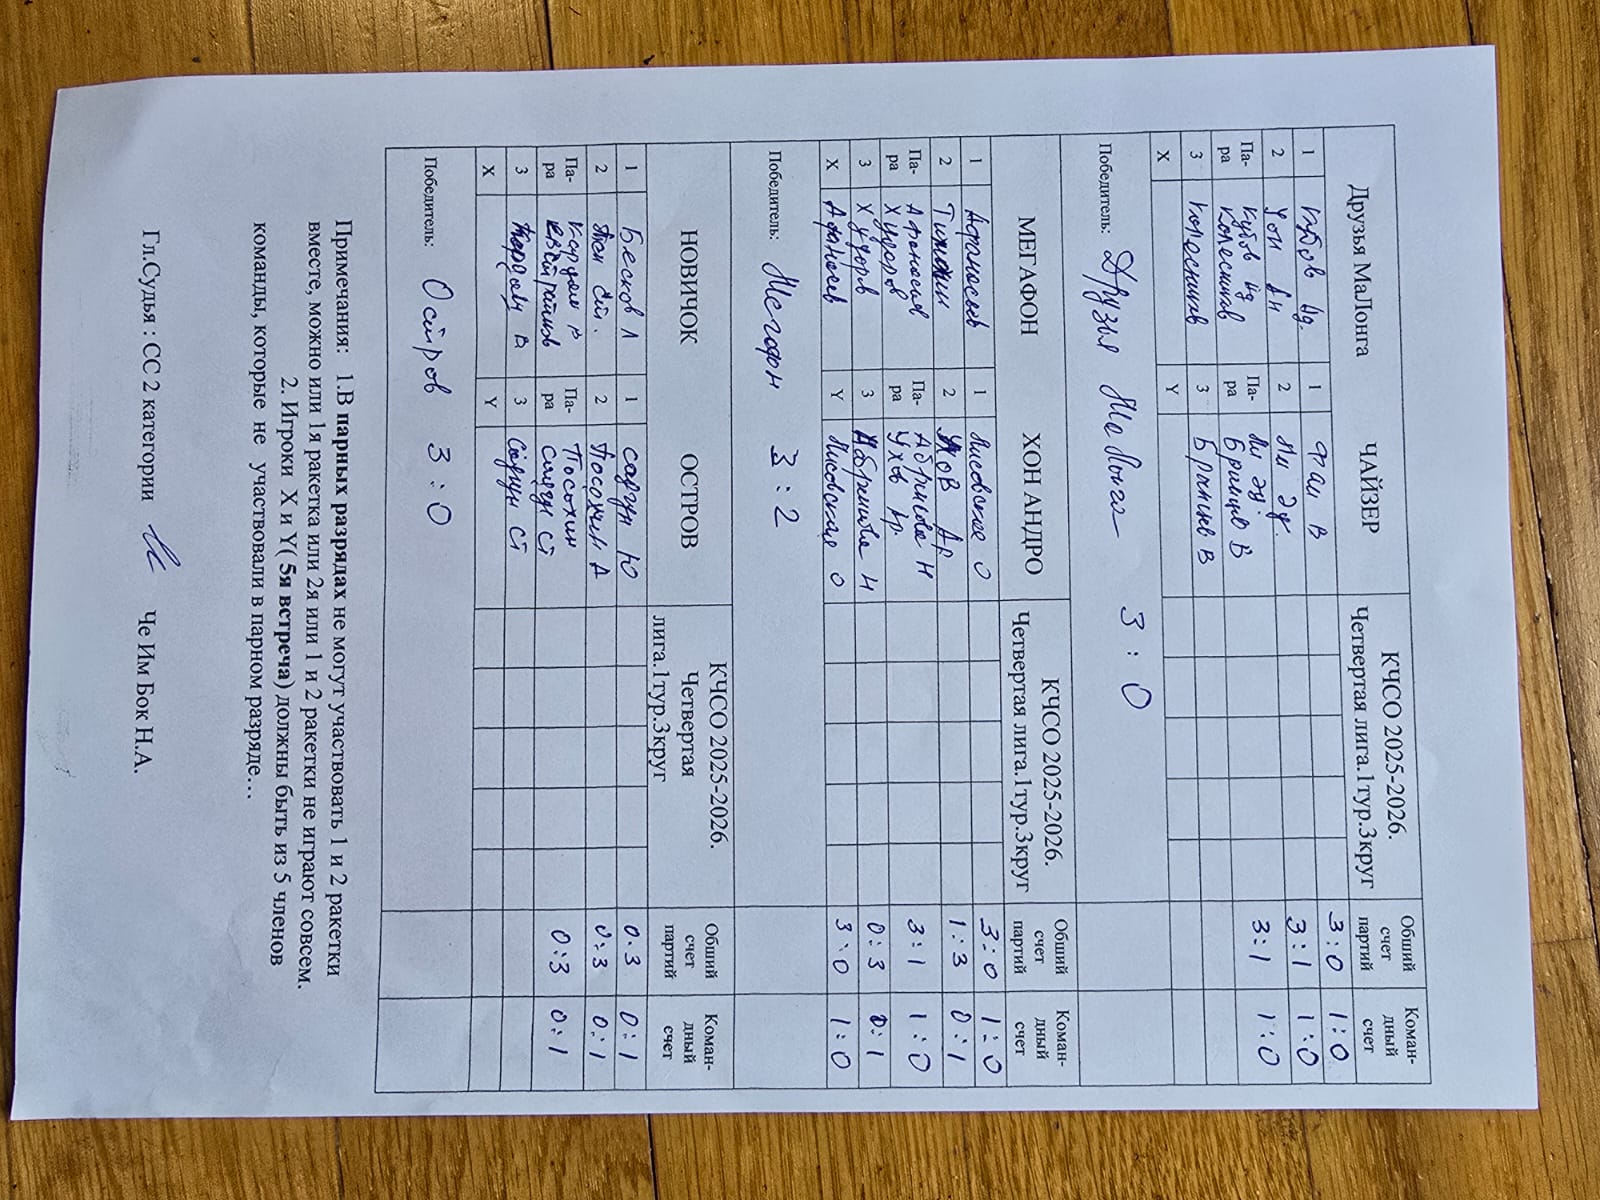 Друзья МаЛонга ЧАЙЗЕР КЧСО 2025-2026. Четвертая лига.1тур.3круг Общий счет партий Коман-дный счет
1 Ид. 1 Фан В 3:0 1:0
2 Ен 2 Ли Эд. 3:1 1:0
Па-ра Ид Па-ра Ли Эд 3:1 1:0
Колесников В
3 Колесников 3 В
X Y
Победитель: Друзья МаЛонга 3:0
МЕГАФОН ХОН АНДРО КЧСО 2025-2026. Четвертая лига.1тур.3круг Общий счет партий Коман-дный счет
1 Афанасьев 1 О 3:0 1:0
2 2 1:3 0:1
Па-ра Афанасьев Па-ра Н 3:1 1:0
Худоров Ухов
3 Худоров 3 Н 0:3 0:1
X Афанасьев Y О 3:0 1:0
Победитель: Мегафон 3:2
НОВИЧОК ОСТРОВ КЧСО 2025-2026. Четвертая лига.1тур.3круг Общий счет партий Коман-дный счет
1 Бесков Л 1 Ю 0:3 0:1
2 2 Посохин А 0:3 0:1
Па-ра Па-ра Посохин 0:3 0:1
Ст
3 В 3 Ст
X Y
Победитель: Остров 3:0
Примечания: 1.В парных разрядах не могут участвовать 1 и 2 ракетки
вместе, можно или 1я ракетка или 2я или 1 и 2 ракетки не играют совсем.
2. Игроки X и Y( 5я встреча) должны быть из 5 членов
команды, которые не участвовали в парном разряде…
Гл.Судья : СС 2 категории Че Им Бок Н.А.